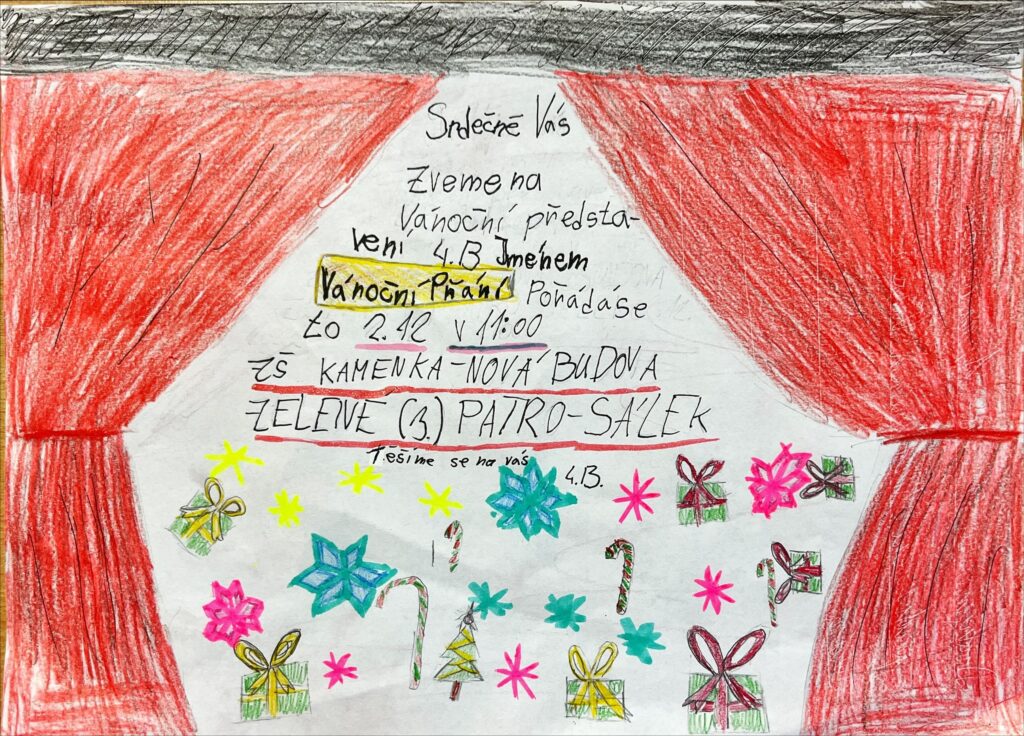 Srdečně Vás
Zveme na
Vánoční předsta-
vení 4.B Jménem
Vánoční Přání Pořádáse
to 2.12 v 11:00
ZŠ KAMENKA-NOVÁ BUDOVA
ZELENE (3.) PATRO-SÁLEK
Těšíme se na vás
4.B.